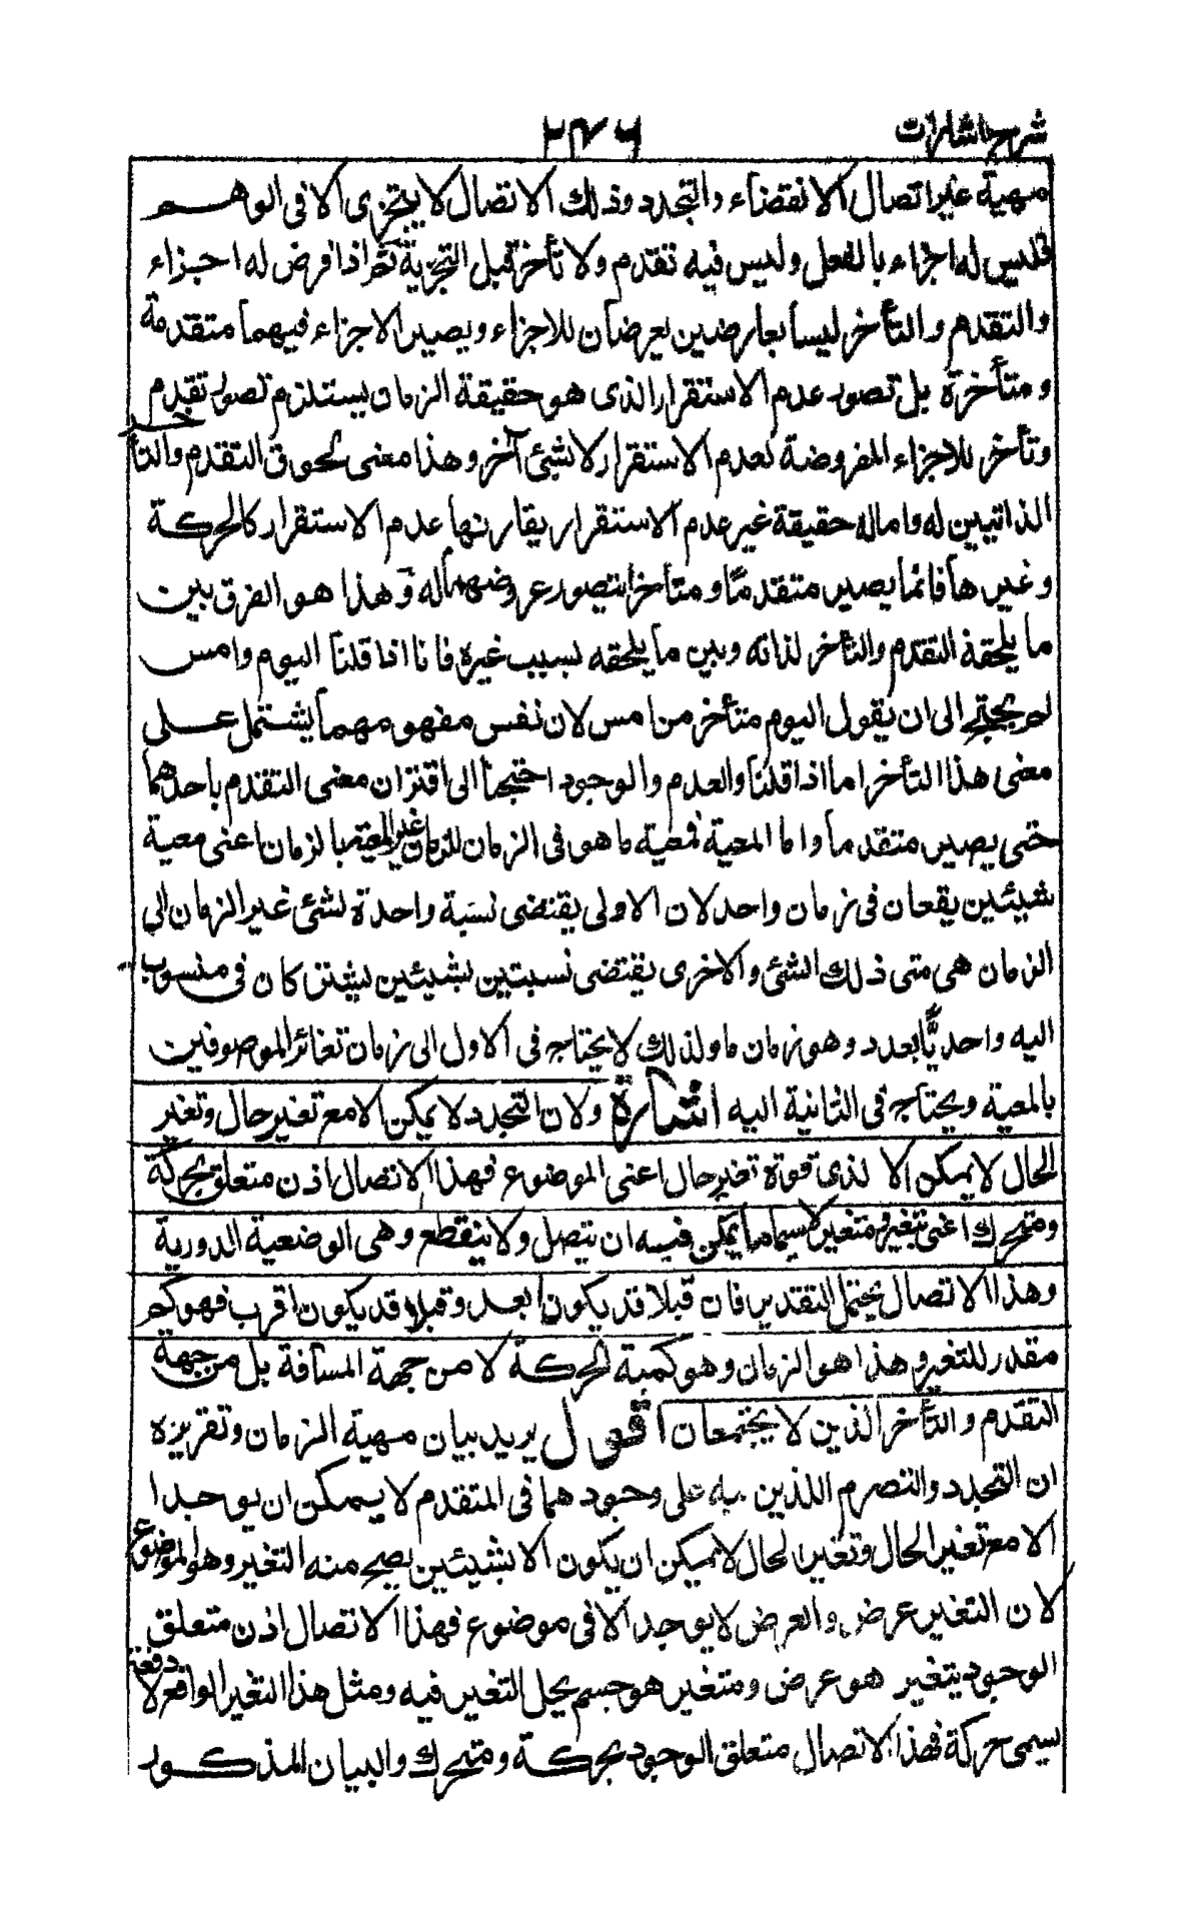 شرح اشارات
٢٣٦
مهية غير اتصال الانقضاء والتجدد وذلك الاتصال لا يتجزى الا فى الوهم
فليس له اجزاء بالفعل وليس فيه تقدم ولا تأخر قبل التجزية ثم اذا فرض له اجزاء
والتقدم والتأخر ليسا بعارضين يعرضان للاجزاء ويصير الاجزاء فيهما متقدمة
ومتأخرة بل تصور عدم الاستقرار الذى هو حقيقة الزمان يستلزم تصور تقدم
وتأخر للاجزاء المفروضة لعدم الاستقرار لا لشئ آخر وهذا معنى لحوق التقدم والتأخر
الذاتيين له واما له حقيقة غير عدم الاستقرار يقارنها عدم الاستقرار كالحركة
وغيرها فانما يصير متقدمًا ومتأخرا بتصور عروضهما له وهذا هو الفرق بين
ما يلحقه التقدم والتأخر لذاته وبين ما يلحقه بسبب غيره فانا اذا قلنا اليوم وامس
لم نحتج الى ان نقول اليوم متأخر من امس لان نفس مفهومهما يشتمل على
معنى هذا التأخر اما اذا قلنا والعدم والوجود احتجنا الى اقتران معنى التقدم باحدهما
حتى يصير متقدما واما المعية فمعية ما هو فى الزمان للزمان غير المعية بالزمان اعنى معية
شيئين يقعان فى زمان واحد لان الاولى يقتضى نسبة واحدة لشئ غير الزمان الى
الزمان هى متى ذلك الشئ والاخرى يقتضى نسبتين بشيئين يشتركان فى منسوب
اليه واحد بالعدد وهو زمان ما ولذلك لا يحتاج فى الاول الى زمان تغائر الموصوفين
بالمعية ويحتاج فى الثانية اليه اشارة ولان التجدد لا يمكن الا مع تغير حال وتغير
الحال لا يمكن الا لذى قوة تغير حال اعنى الموضوع فهذا الاتصال اذن متعلق بحركة
ومتحرك اعنى بتغير ومتغير لا سيما ما يمكن فيه ان يتصل ولا ينقطع وهى الوضعية الدورية
وهذا الاتصال يحتمل التقدير فان قبلا قد يكون ابعد وقبلا قد يكون اقرب فهو كم
مقدر للتغير وهذا هو الزمان وهو كمية الحركة لا من جهة المسافة بل من جهة
التقدم والتأخر الذين لا يجتمعان اقول يريد بيان مهية الزمان وتقريره
ان التجدد والتصرم اللذين نبه على وجودهما فى المتقدم لا يمكن ان يوجدا
الا مع تغير الحال وتغير الحال لا يمكن ان يكون الا بشيئين يصح منه التغير وهو الموضوع
لان التغير عرض والعرض لا يوجد الا فى موضوع فهذا الاتصال اذن متعلق
الوجود بتغير هو عرض ومتغير هو جسم يحل التغير فيه ومثل هذا التغير الواقع لا دفعة
يسمى حركة فهذا الاتصال متعلق الوجود بحركة ومتحرك والبيان المذكور